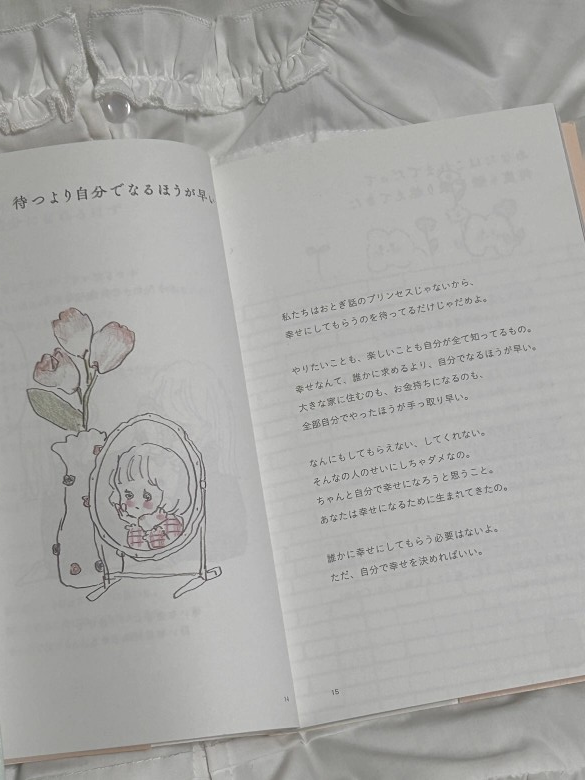 待つより自分でなるほうが早い
私たちはおとぎ話のプリンセスじゃないから、
幸せにしてもらうのを待ってるだけじゃだめよ。
やりたいことも、楽しいことも自分が全て知ってるもの。
幸せなんて、誰かに求めるより、自分でなるほうが早い。
大きな家に住むのも、お金持ちになるのも、
全部自分でやったほうが手っ取り早い。
なんにもしてもらえない、してくれない。
そんなの人のせいにしちゃダメなの。
ちゃんと自分で幸せになろうと思うこと。
あなたは幸せになるために生まれてきたの。
誰かに幸せにしてもらう必要はないよ。
ただ、自分で幸せを決めればいい。
14
15